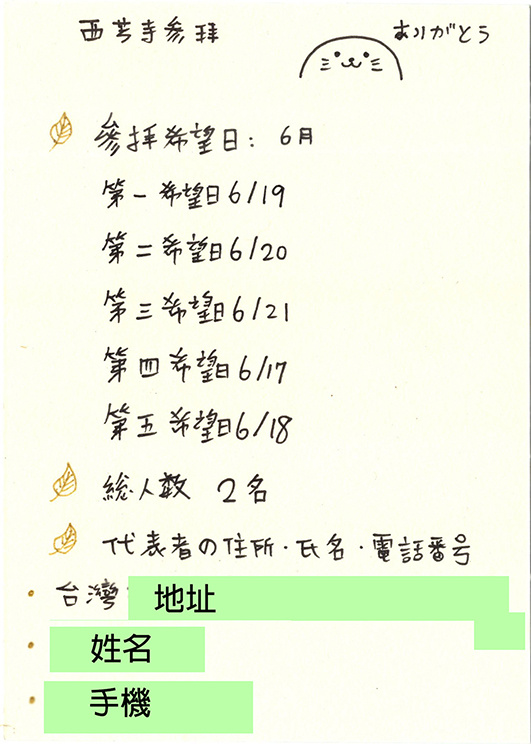 西芳寺參拜
ありがとう
參拝希望日：6月
第一希望日6/19
第二希望日6/20
第三希望日6/21
第四希望日6/17
第五希望日6/18
総人数 2名
代表者の住所・氏名・電話番号
台灣 地址
姓名
手機